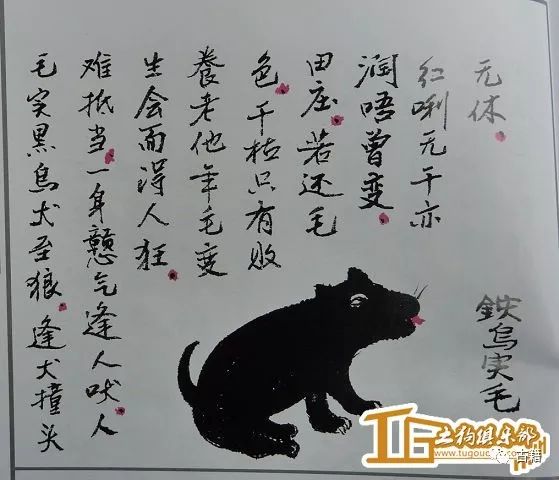 鉄乌実毛
毛实黑乌犬至狼逢犬撞头
难抵当一身戆气逢人吠人
生会而得人狂
養老他年毛变
色干枯只有败
田庄若还毛
润唔曾变
红唎无干亦
无休
土狗俱乐部
古籍